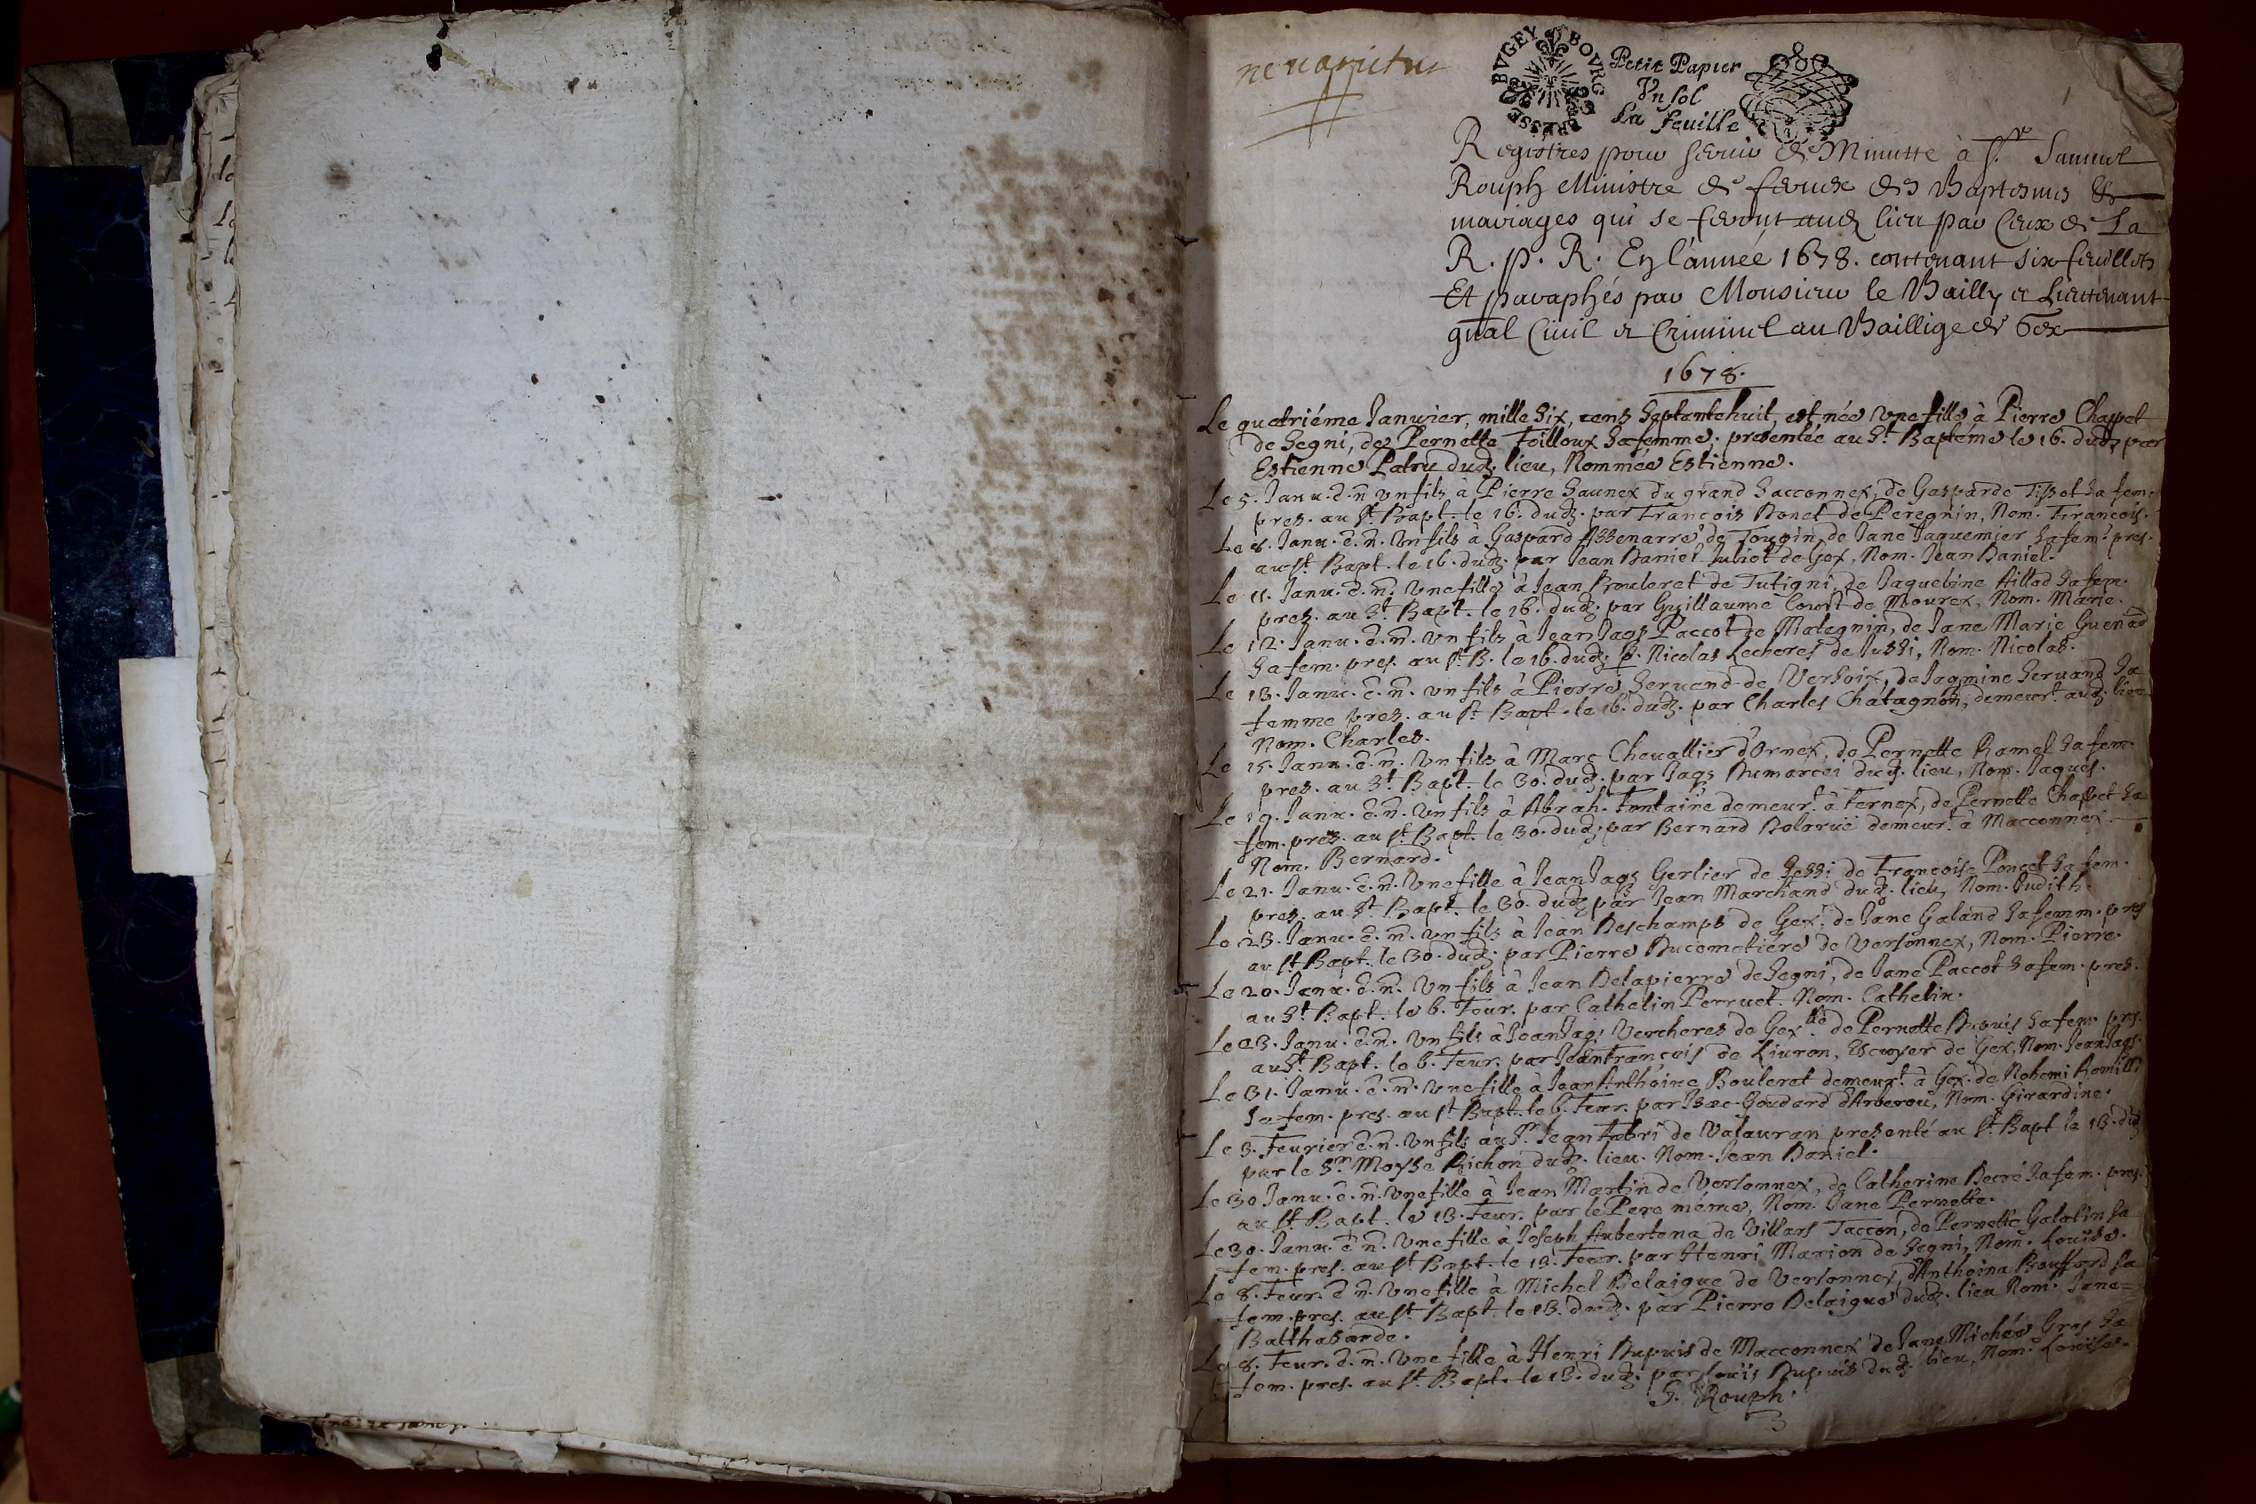 BVGEY BOVRG BRESSE
Petit Papier
Vn sol
La feuille
1
Registres pour servir de Minutte à Sr. Samuel
Rouph Ministre de fernex des Baptesmes &
mariages qui se feront aud lieu par Ceux de La
R. p. R. En l'année 1678. contenant six feuillets
Et paraphés par Monsieur le Bailly et Lieutenant
gnal Civil et Criminel au Bailliage de Gex
1678.
Le quatriéme Janvier, mille six, cens septantehuit, est née vne fille à Pierre Chappet
de Segni, de Pernette Foilloux sa femme, presentée au St Baptéme le 16. dud. par
Estienne Patru dud. lieu, Nommée Estienne.
Le 5. Janu. e. n. vn fils à Pierre Saunex du grand Sacconnex, de Gasparde Tissot sa fem.
pres. au St. Bapt. le 16. dud. par François Bonet de Peregnin, Nom. François.
Le 8. Janu. e. n. vn fils à Gaspard Assenarre de Tougin, de Jane Jaquemier sa fem. pres.
au St. Bapt. le 16. dud. par Jean Daniel Juliet de Gex, Nom. Jean Daniel.
Le 11. Janu. e. n. vne fille à Jean Bouleret de Tutigni, de Jaquebine Aillod sa fem.
pres. au St Bapt. le 16. dud. par Guillaume Court de Mourex, Nom. Marie.
Le 12. Janu. e. n. vn fils à Jean Jaqs Paccot de Mategnin, de Jane Marie Guenod
sa fem. pres. au St B. le 16. dud. p. Nicolas Lecheres de Jussi, Nom. Nicolas.
Le 13. Janu. e. n. vn fils à Pierre Seruand de Versoix, de Jaqmine Seruand sa
femme pres. au St. Bapt. le 16. dud. par Charles Chatagnon, demeurt. aud. lieu
Nom. Charles.
Le 15. Janu. e. n. vn fils à Marc Cheuallier d'Ornex, de Pernette Ramel sa fem.
pres. au St. Bapt. le 30. dud. par Jaqs Dumarcei dud. lieu, Nom. Jaques.
Le 19. Janu. e. n. vn fils à Abrah. Fontaine demeurt. à Fernex, de Pernette Chappet sa
fem. pres. au St. Bapt. le 30. dud. par Bernard Delarue demeurt. à Macconnex.
Nom. Bernard.
Le 21. Janu. e. n. vne fille à Jean Jaqs Gerlier de Sessi de Françoise Poncet sa fem.
pres. au St Bapt. le 30. dud. par Jean Marchand dud. lieu, Nom. Judith.
Le 23. Janu. e. n. vn fils à Jean Deschamps de Gex, de Jane Galand sa femm. pres
au St Bapt. le 30. dud. par Pierre Ducemetiére de Versonnex, Nom. Pierre.
Le 20. Janu. e. n. vn fils à Jean Delapierre de Segni, de Jane Paccot sa fem. pres.
au St Bapt. le 6. Feur. par Cathelin Perruet. Nom. Cathelin.
Le 23. Janu. e. n. vn fils à Jean Jaqs Vercheres de Gex de Pernette Dupuis sa fem. pres.
au St. Bapt. le 6. Feur. par Jean François de Liuron, Escuyer de Gex, Nom. Jean Jaqs.
Le 31. Janu. e. n. vne fille à Jean Anthoine Bouleret demeurt. à Gex. de Nohemi Romilli
sa fem. pres. au St Bapt. le 6. Feur. par Isac Goudard, Nom. Girardine.
Le 3. Feurier e. n. vn fils au Sr. Jean Fabri de Valauran presenté au St. Bapt le 13. dud
par le Sr. Moyse Pichon dud. lieu. Nom. Jean Daniel.
Le 30 Janu. e. n. vne fille à Jean Martin de Versonnex, de Catherine Decré sa fem. pres.
au St. Bapt. le 13. Feur. par le Pere méme, Nom. Jane Pernette.
Le 30. Janu. e. n. vne fille à Joseph Aubertena de Villars Taccon, de Pernette Galatin sa
fem. pres. au St Bapt. le 13. Feur. par Henri Marion de Segni, Nom. Louise.
Le 8. Feur. e n. vne fille à Michel Delaigue de Versonnex, d'Anthoina Bouffard sa
fem. pres. au St. Bapt. le 13. dud. par Pierre Delaigue dud. lieu Nom. Jane
Balthasarde.
Le 8. Feur. e. n. vne fille à Henri Dupuis de Macconnex de Jane Michée Gras sa
fem. pres. au St. Bapt. le 13. dud. par Louis Dupuis dud. lieu, Nom. Louise.
S. Rouph.